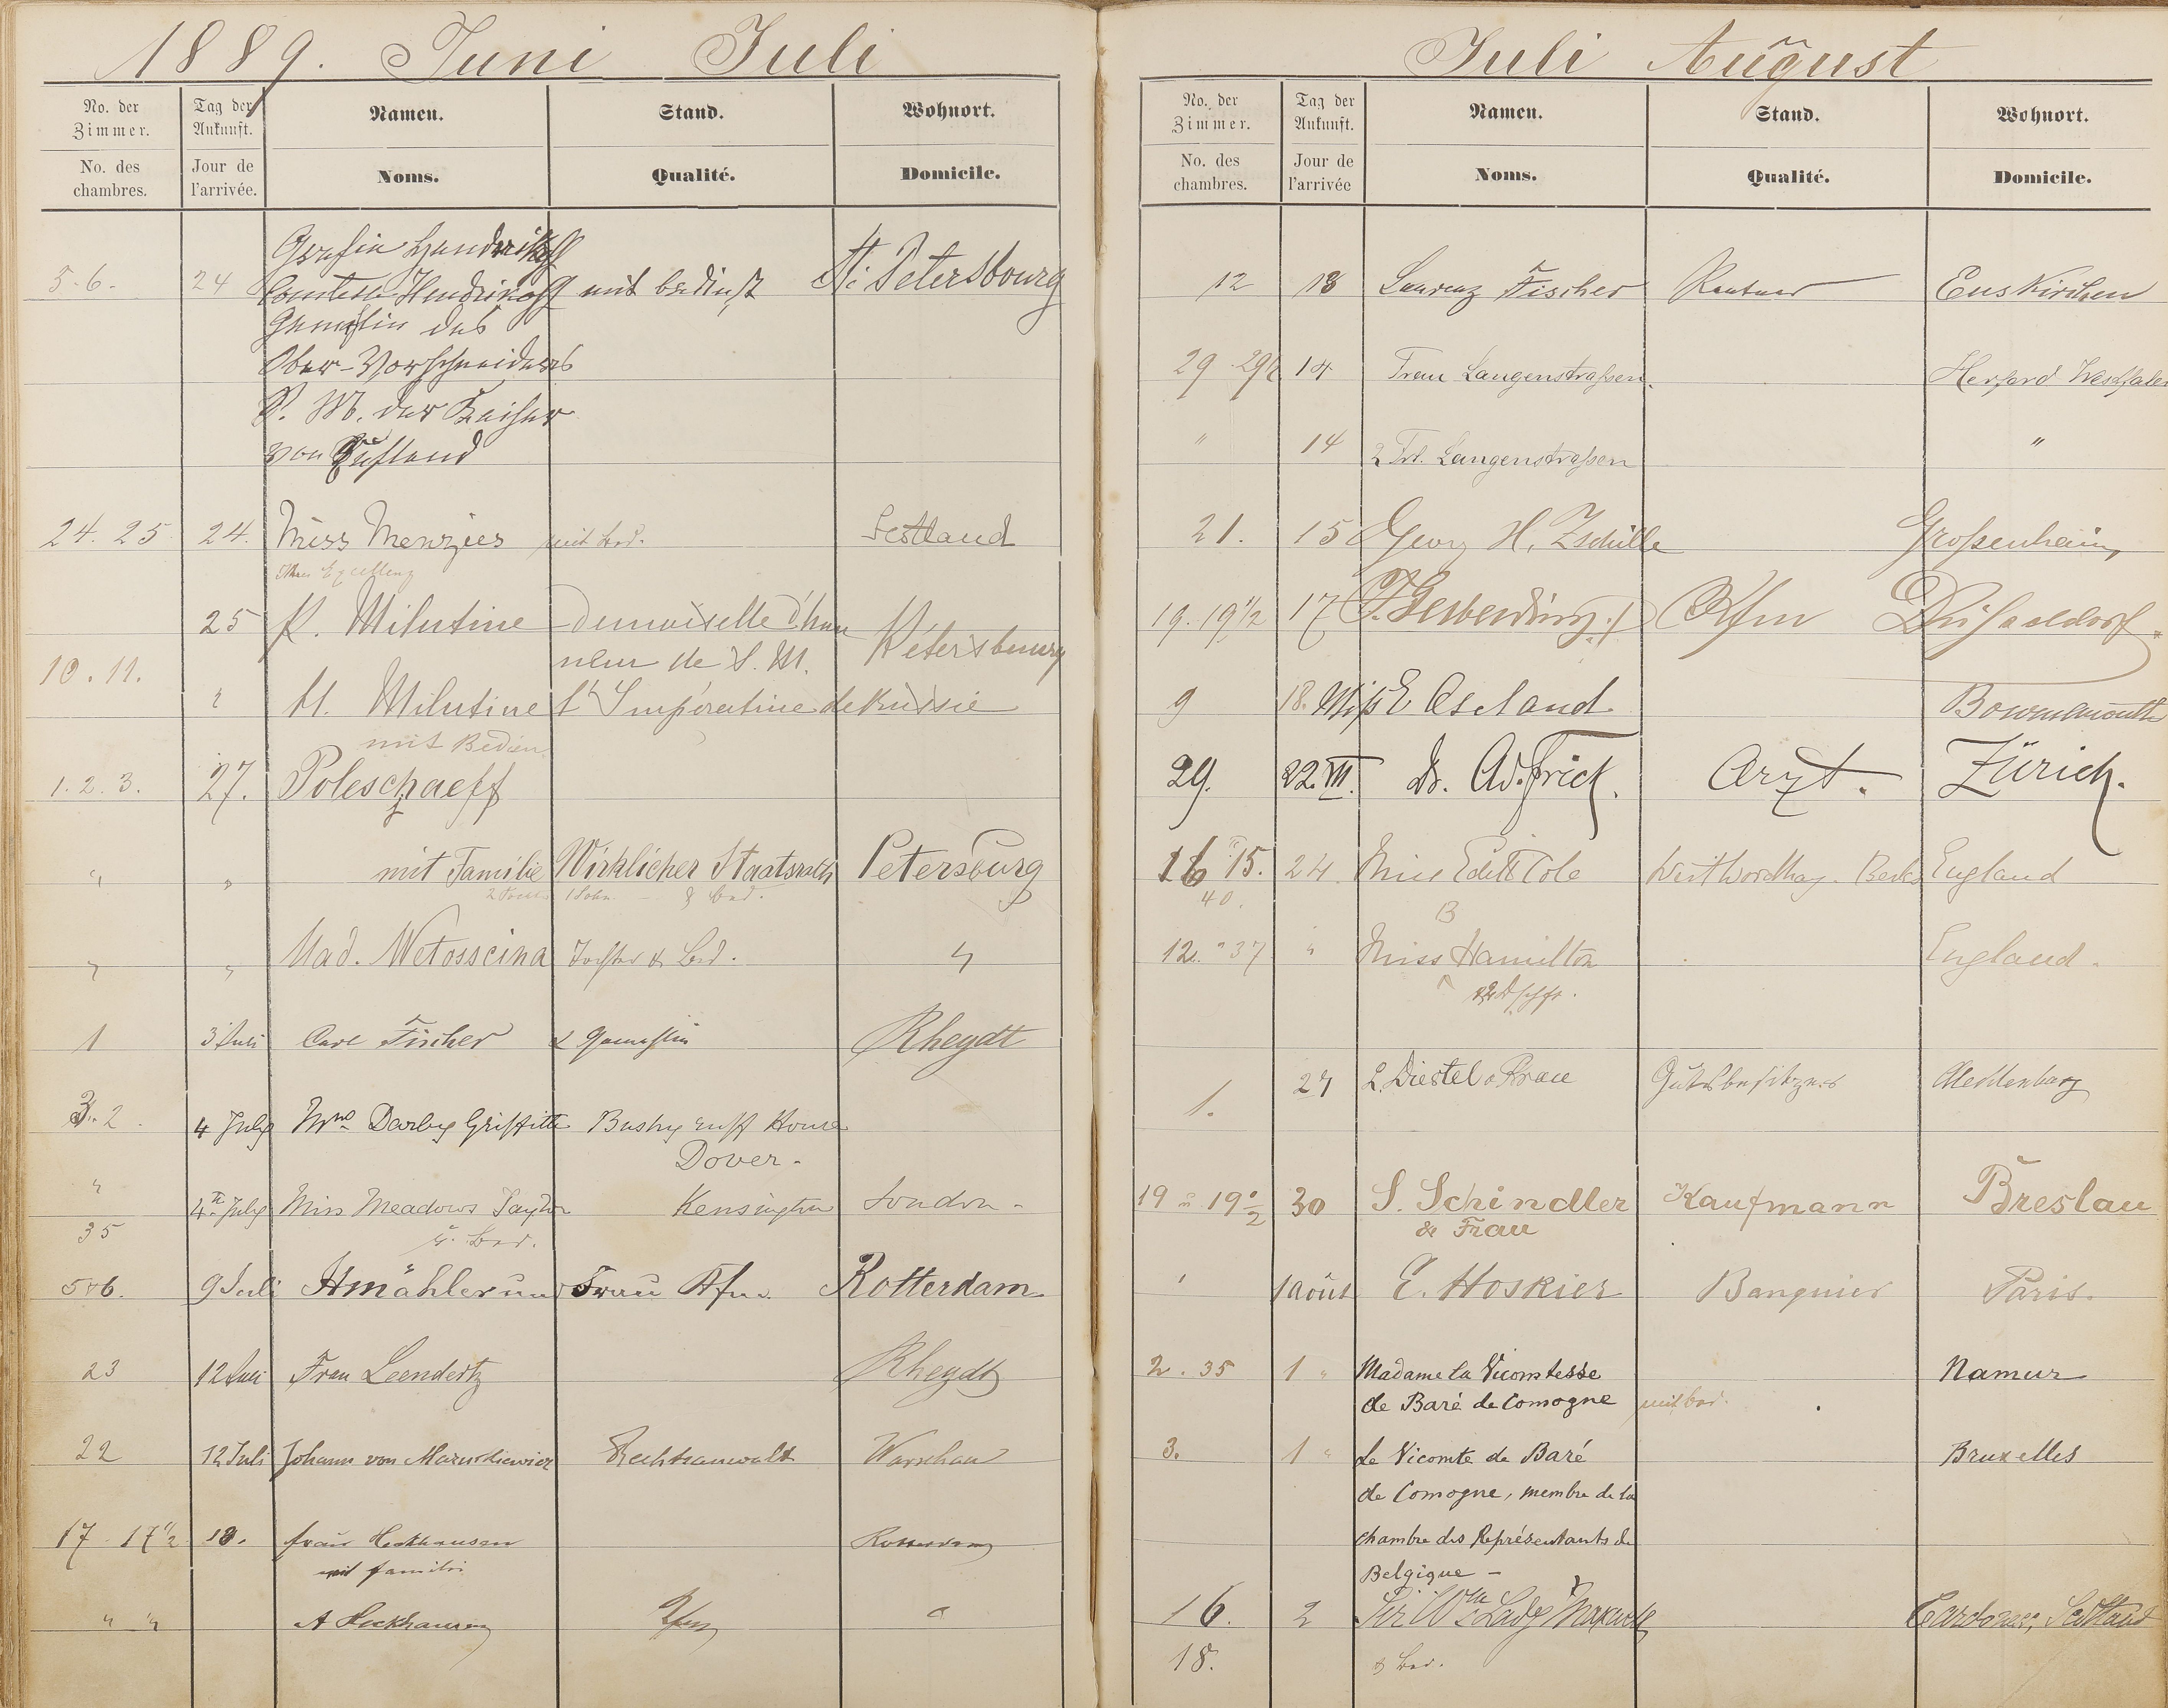 1889. Juni Juli
No. der Zimmer. Tag der Ankunft. Namen. Stand. Wohnort.
No. des chambres. Jour de l'arrivée. Noms. Qualité. Domicile.
Gräfin Hendrikoff
5.6. 24 Comtesse Hendrikoff mit bedienst St. Petersbourg
Gemahlin des
Ober-Vorschneiders
S. M. der Kaiser
von Rußland
24. 25. 24. Miss Menzies mit bed. Scotland
Ihre Excellenz
25 K. Milutine demoiselle d'hon
neur de S. M. Pétersbourg
10. 11.
" M. Milutine l'Impératrice de Russie
mit Bedien
1. 2. 3. 27. Poleschaeff
" " mit Familie Wirklicher Staatsrath Petersburg
1 Sohn & bed.
" " Mad. Wetosscina Tochter & bed. "
1 3 Juli Carl Fischer & Gemahlin Rheydt
3. 2. 4 July Mrs Darby Griffith Bushy ruff House
Dover.
" 4th July Miss Meadows Taylor Kensington London.
35 u. bed.
5&6. 9 Juli H mähler und Frau Kfm. Rotterdam
23 12 Juli Frau Leendertz Rheydt
22 12 Juli Johann von Rechtsanwalt Warschau
17 17 1/2 18. frau Heckhausen Rotterdam
mit familie
" " A Heckhausen Kfm "
Juli August
No. der Zimmer. Tag der Ankunft. Namen. Stand. Wohnort.
No. des chambres. Jour de l'arrivée Noms. Qualité. Domicile.
12 13 Laurenz Fischer Rentner Euskirchen
29 29 1/2 14 Frau Langenstraßen. Herford Westfalen
" 14 2 Frl. Langenstraßen "
21. 15 Georg H. Zschille Großenhain,
19. 19 1/2 17 Kfm Düsseldorf.
9 18. Miß E Bournemouth
29. 22. VII. Dr. Ad. Frick. Arzt. Zürich.
16 15. 24. Miss Edith Cole Berks England
40.
12. " 37 " Miss Hamilton England.
1. 27 L. Diestel & Frau Gutsbesitzer Mecklenburg
19 u 19 1/2 30 S. Schindler Kaufmann Breslau
& Frau
1 1 août E. Hoskier Banquier Paris.
2. 35 1 " Madame la Vicomtesse Namur
de Baré de Comogne mit bed.
3. 1 " Le Vicomte de Baré Bruxelles
de Comogne, membre de la
chambre des Représentants de
Belgique -
16. 2 Sir Wm & Lady Maxwell Cardoness, Scotland
18. & bed.